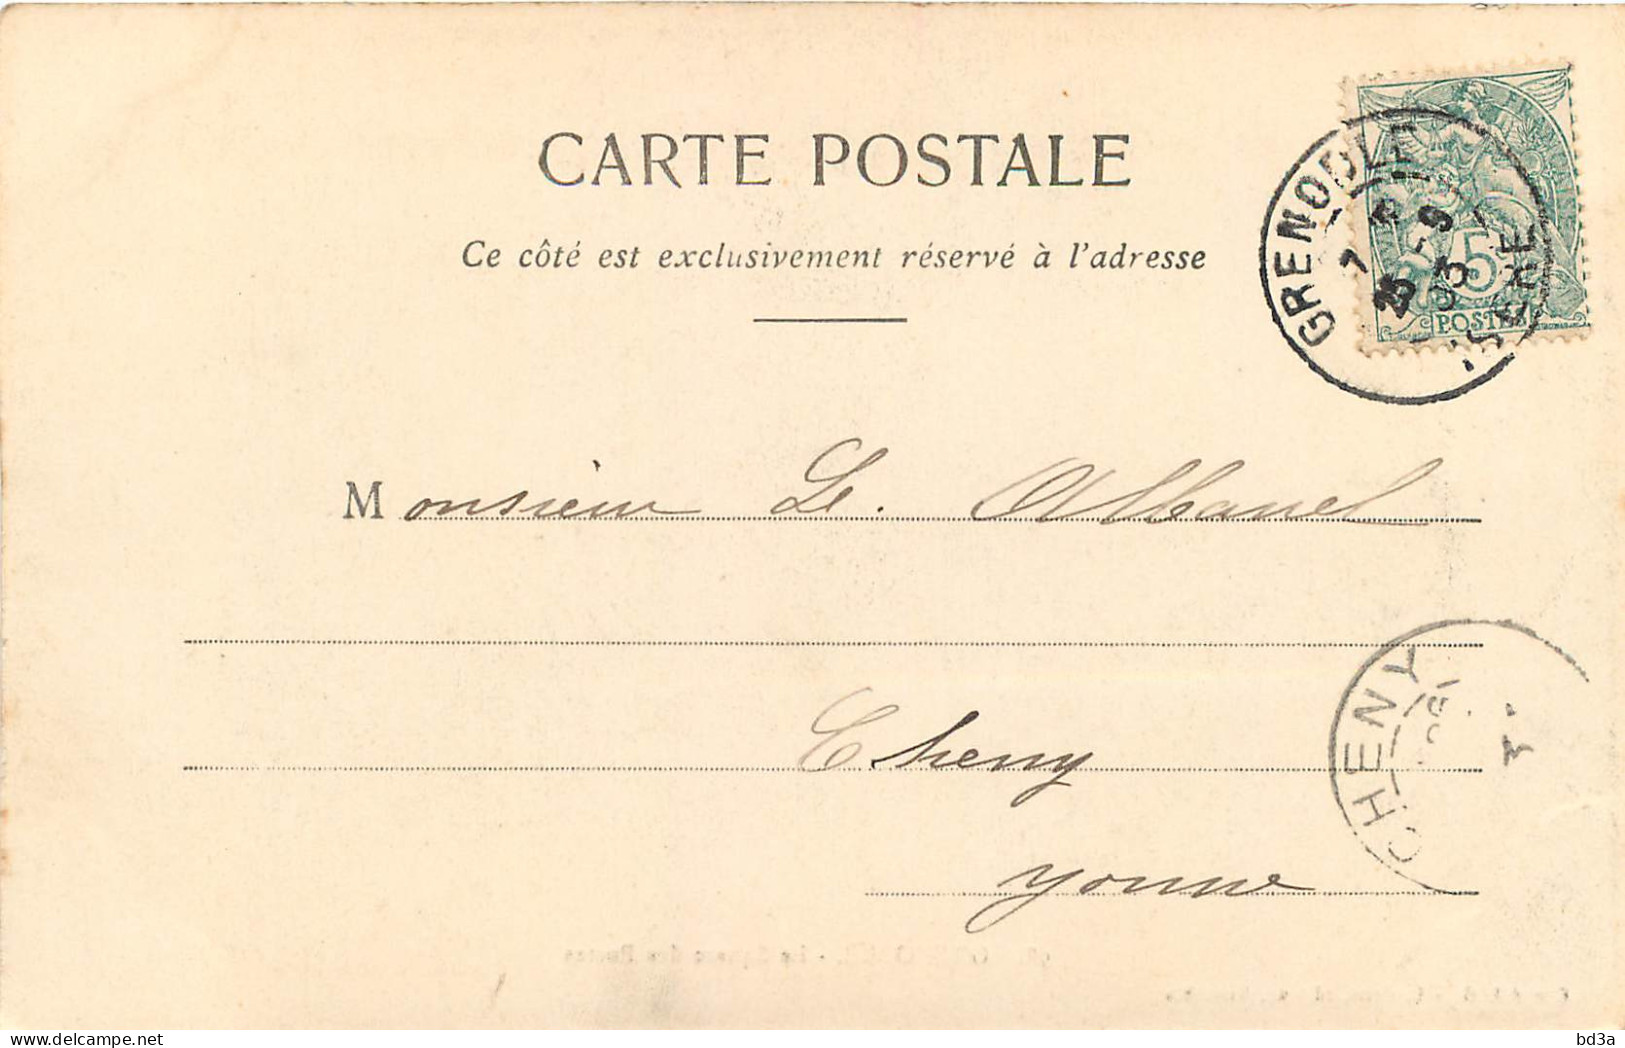 CARTE POSTALE
Ce côté est exclusivement réservé à l'adresse
GRENOBLE
ISÈRE
5
POSTES
Monsieur Le. Albanel
Cheny
Yonne
CHENY
bd3a